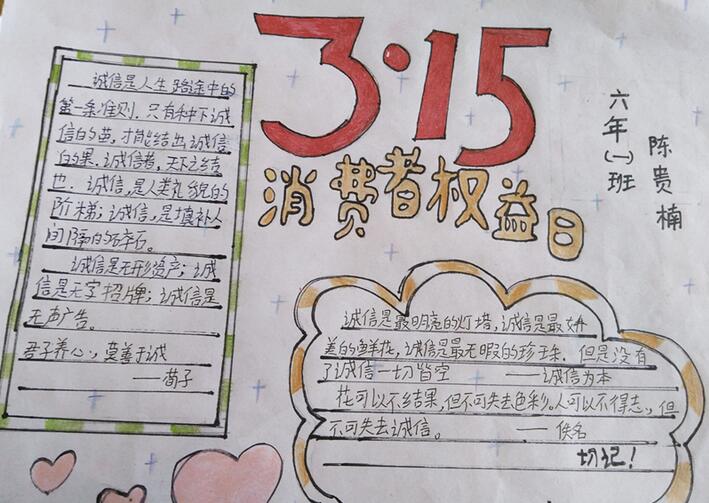 3·15
消费者权益日
六年(一)班
陈贵楠
诚信是人生路途中的
第一条准则.只有种下诚
信的苗,才能结出诚信
的果.诚信者,天下之结
也.诚信,是人类礼貌的
阶梯;诚信,是填补人
间隔的碎石。
诚信是无形资产;诚
信是无字招牌;诚信是
无声广告。
君子养心,莫善于诚
——荀子
诚信是最明亮的灯塔,诚信是最娇
美的鲜花,诚信是最无暇的珍珠.但是没有
了诚信一切皆空 ——诚信为本
花可以不结果,但不可失去色彩。人可以不得志,但
不可失去诚信。 ——佚名
切记!